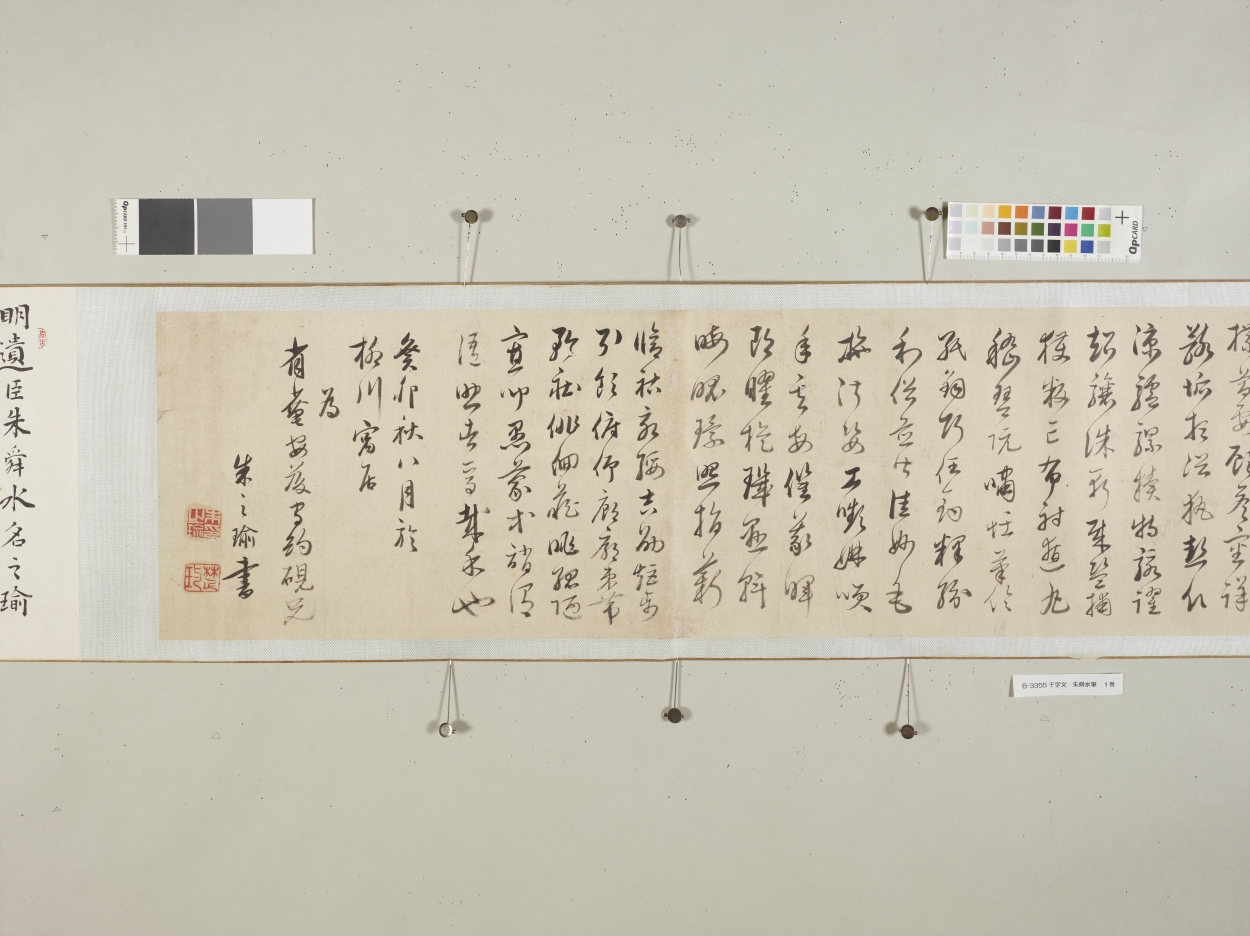 牒簡要顧答審詳
骸垢想浴執熱願
涼驢騾犢特駭躍
超驤誅斬賊盜捕
獲叛亡布射遼丸
嵇琴阮嘯恬筆倫
紙鈞巧任釣釋紛
利俗並皆佳妙毛
施淑姿工顰妍笑
年矢每催羲暉
朗曜旋璣懸斡
晦魄環照指薪
脩祜永綏吉劭矩步
引領俯仰廊廟束帶
矜莊徘徊瞻眺孤陋
寡聞愚蒙等誚謂
語助者焉哉乎也
癸卯秋八月於
柳川寓居
為
省菴安藤守約硯兄
朱之瑜書
明遺臣朱舜水名之瑜
QPCARD
QPCARD
B-3355 千字文 朱舜水筆 1巻